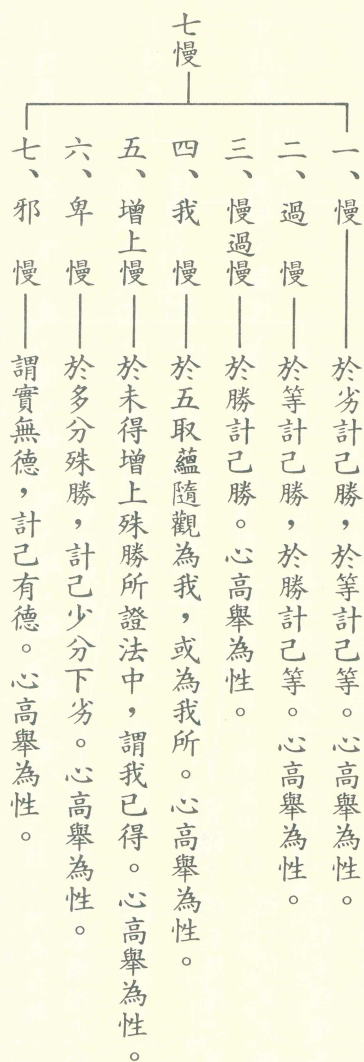 七慢
一、慢——於劣計己勝，於等計己等。心高舉為性。
二、過慢——於等計己勝，於勝計己等。心高舉為性。
三、慢過慢——於勝計己勝。心高舉為性。
四、我慢——於五取蘊隨觀為我，或為我所。心高舉為性。
五、增上慢——於未得增上殊勝所證法中，謂我已得。心高舉為性。
六、卑慢——於多分殊勝，計己少分下劣。心高舉為性。
七、邪慢——謂實無德，計己有德。心高舉為性。